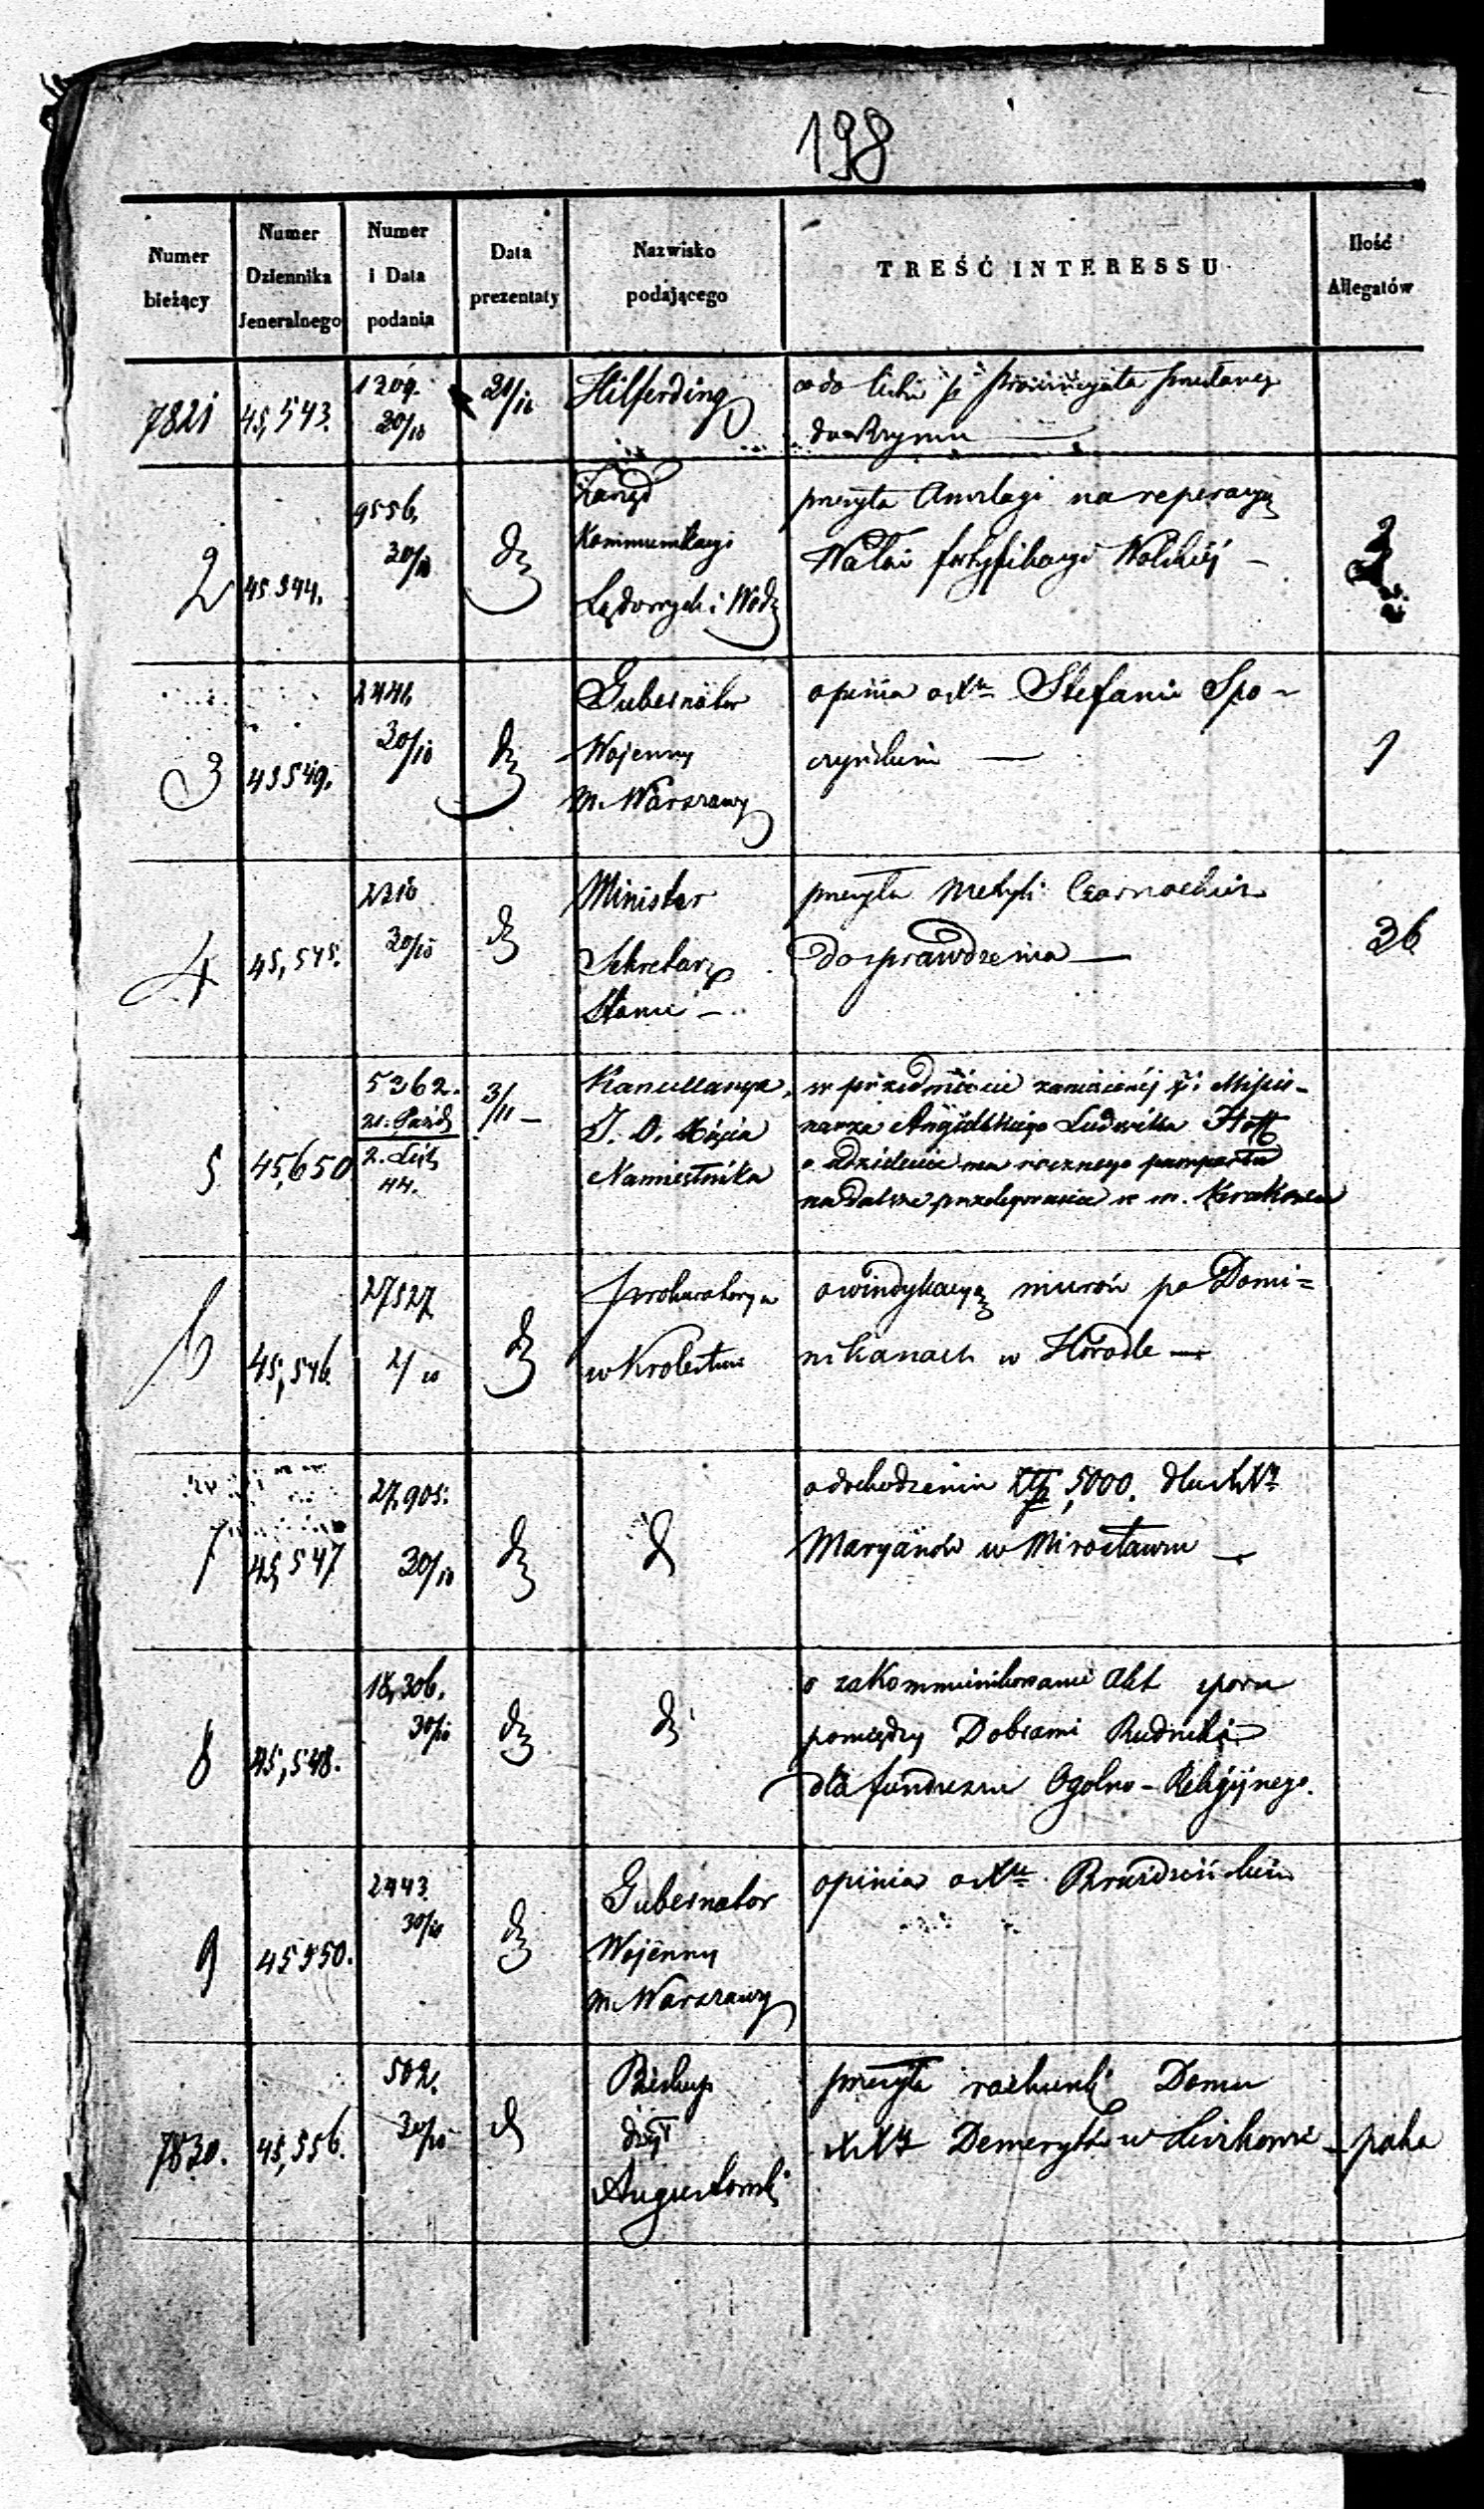 198
Numer bieżący
Numer Dziennika Jeneralnego
Numer i Data podania
Data prezentaty
Nazwisko podającego
TREŚĆ INTERESSU
Ilość Allegatów
7821 45,543. 1209. 30/10 31/10 Hilferding
2 45.544. 9556. 30/10 Zarząd
Kommunikacyi
Lądowych i Wodn
przesyła Anszlagi na reperacyą
Wałów fortyfikacyi Wolskiej –
2
3 45549. 2441. 30/10 Gubernator
Wojenny
m. Warszawy
opinia o Xdu Stefanie Spo-
czyńskim —
1
4 45,545. 2210 30/10 Minister
Sekretarz
Stanu –
przesyła Metryki Czarnockich
do sprawdzenia —
36
5 45,650 5362. 21. Paźd 2. List 44. 3/11 –
Kancellarya
J. O. Xięcia
Namiestnika
w przedmiocie zaniesionéj pr: Missio-
narza Angielskiego Ludwika Hoff
o udzielenie mu rocznego passportu
na dalsze przebywanie w m. Krakowie
6 45,546. 27527 2/10 Prokuratorya
w Krolestwie
o windykacyą murów po Domi=
nikanach w Horodle —
7 45,547 27,905. 30/10
o dochodzeniu Złp 5000. dla XX
Maryanów w Mirosławiu —
8 45,548. 18,306. 30/10
o zakommunikowanie Akt sporu
pomiędzy Dobrami Rudniki
dla funduszu Ogolno-Religijnego.
9 45550. 2443. 30/10 Gubernator
Wojenny
m. Warszawy
opinia o Xdu
7830. 45,556. 502. 30/10 Biskup
dyec
Augustowski
przesyła rachunki Domu
XXży Demerytów w Liszkowie – paka